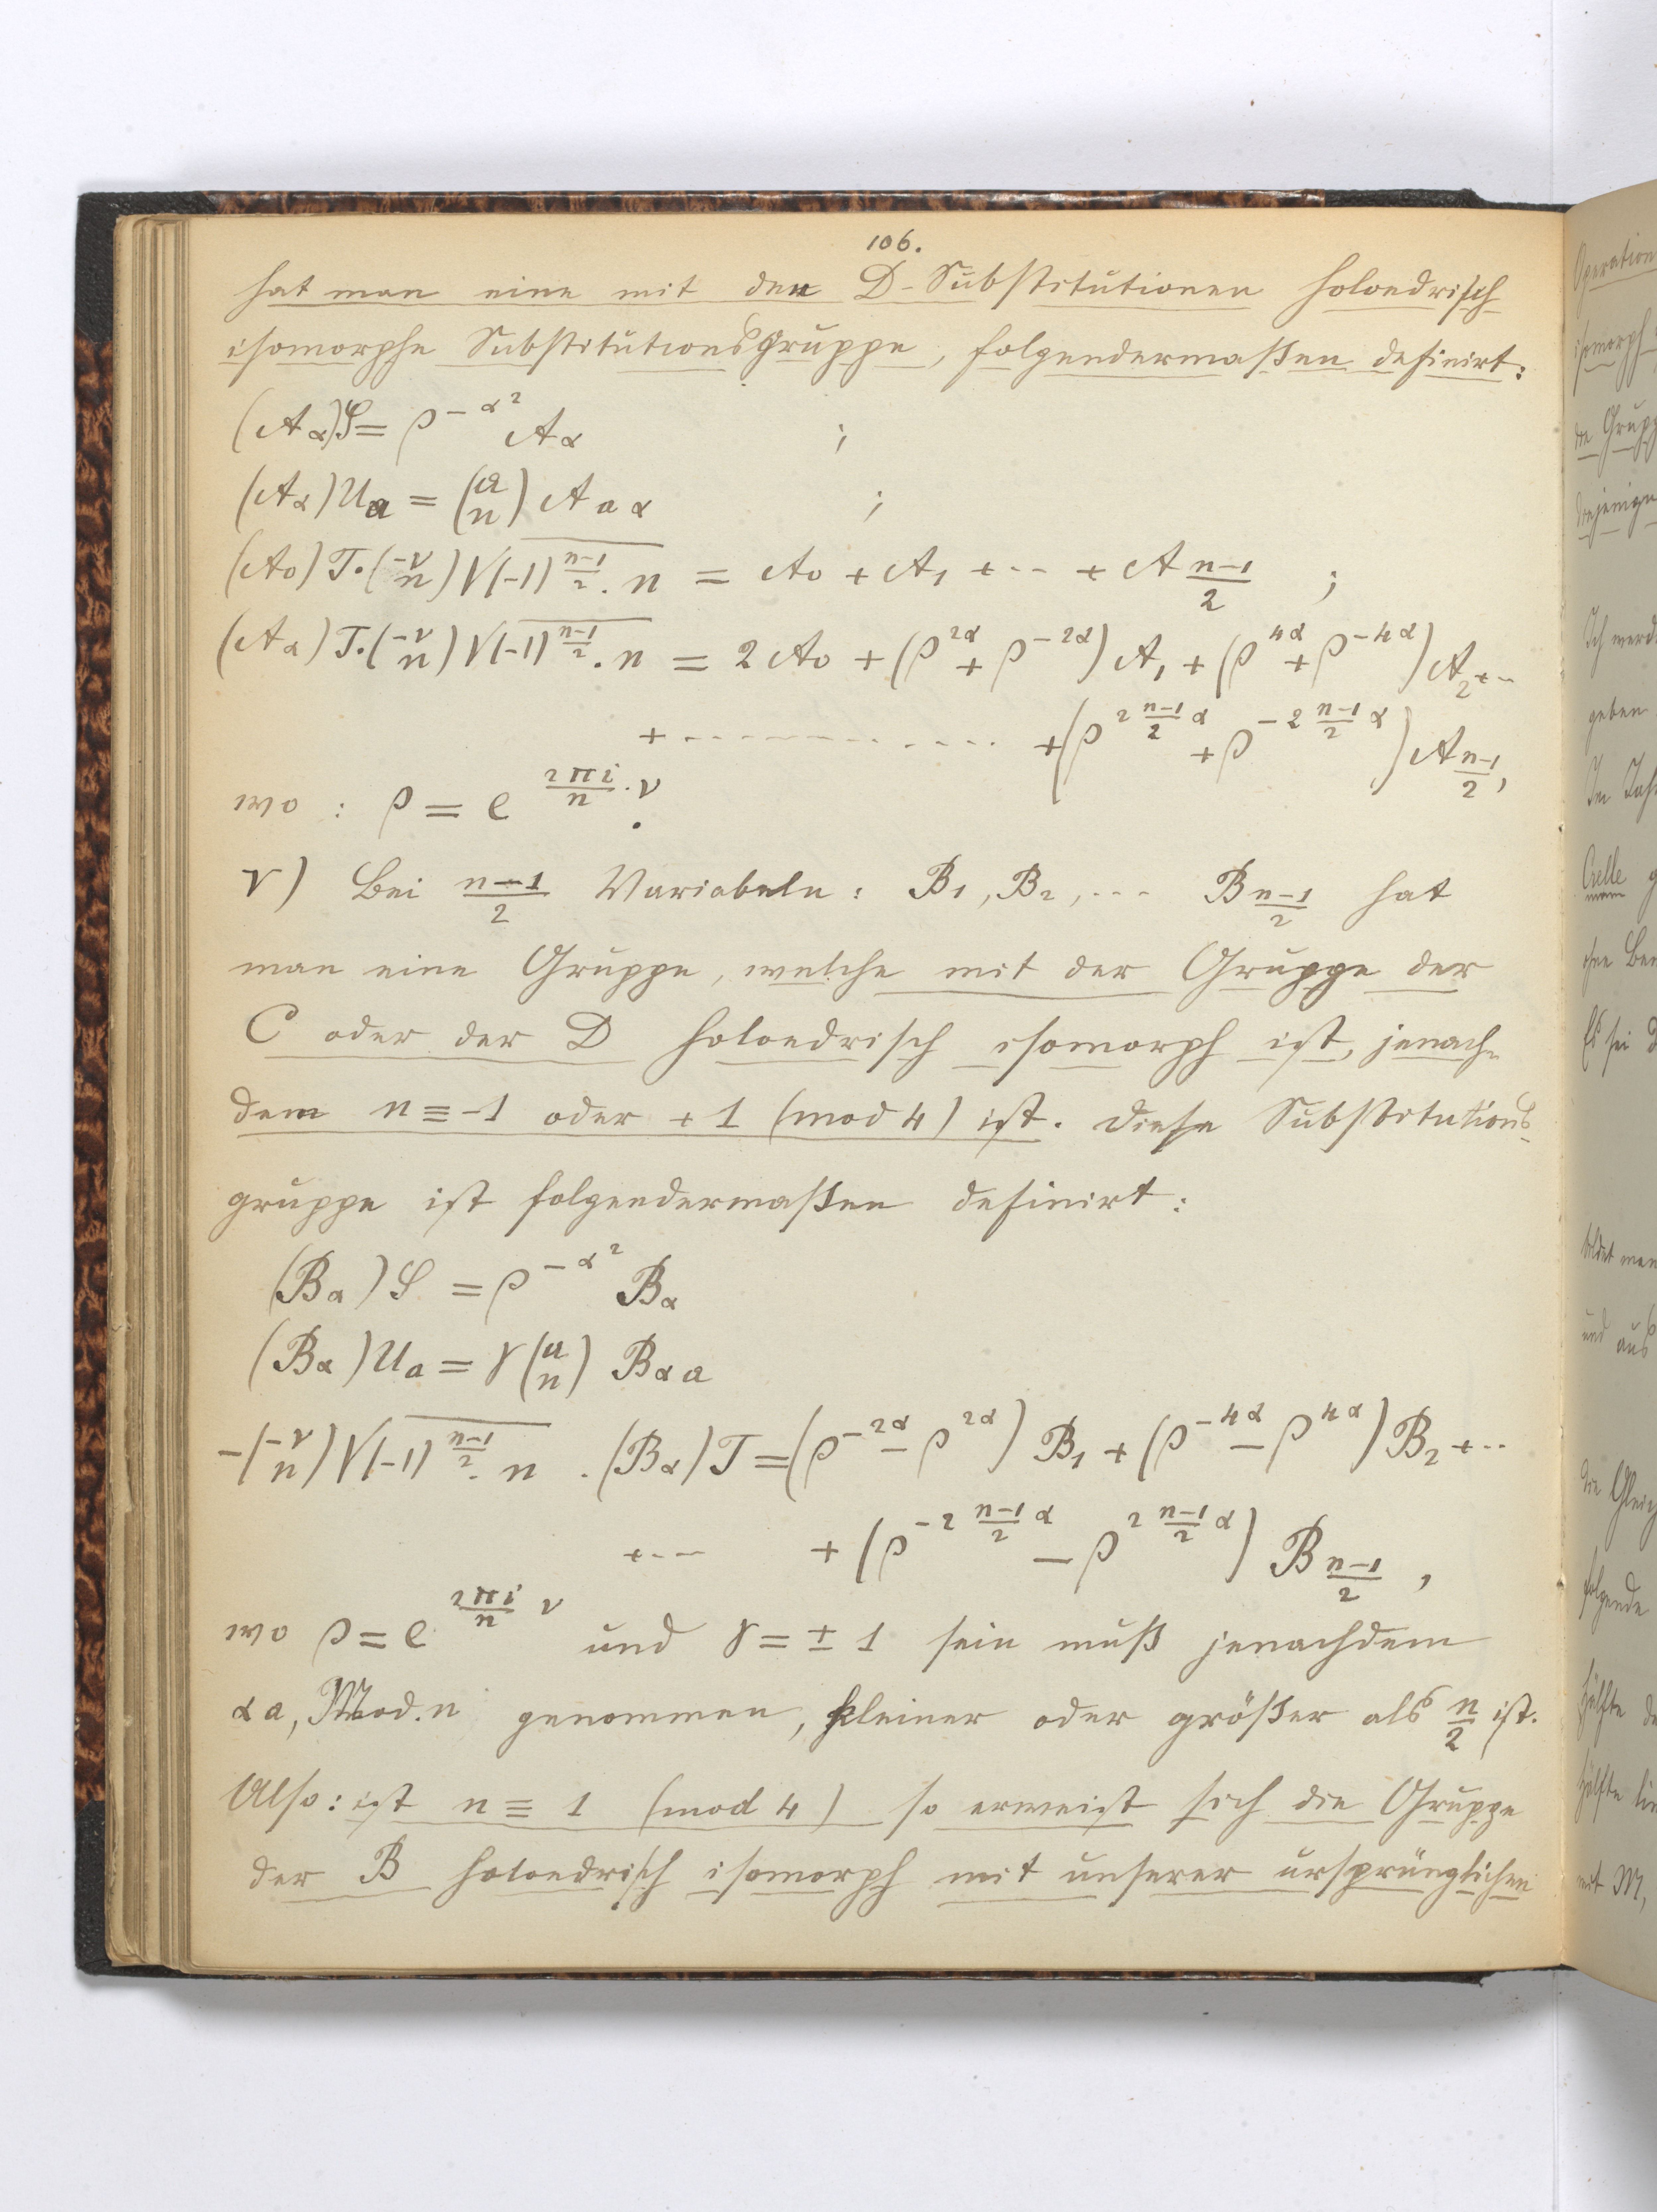 106.
hat man eine mit den D-Substitutionen holoedrisch
isomorphe Substitutionsgruppe, folgendermaßen definirt:
(A_α)S = ρ^{-α²} A_α ;
(A_α)U_a = (a/n) A_{aα} ;
(A_0)T·(-ν/n)√((-1)^{(n-1)/2}·n) = A_0 + A_1 + ··· + A_{(n-1)/2} ;
(A_α)T·(-ν/n)√((-1)^{(n-1)/2}·n) = 2A_0 + (ρ^{2α} + ρ^{-2α})A_1 + (ρ^{4α} + ρ^{-4α})A_2 + ··
+ ············ + (ρ^{2 (n-1)/2 α} + ρ^{-2 (n-1)/2 α})A_{(n-1)/2},
wo : ρ = e^{2πi/n·ν}.
V) Bei (n-1)/2 Variabeln: B_1, B_2, ··· B_{(n-1)/2} hat
man eine Gruppe, welche mit der Gruppe der
C oder der D holoedrisch isomorph ist, jenach-
dem n ≡ -1 oder +1 (mod 4) ist. Diese Substitutions-
gruppe ist folgendermaßen definirt:
(B_α)S = ρ^{-α²} B_α
(B_α)U_a = γ(a/n) B_{αa}
-(-ν/n)√((-1)^{(n-1)/2}·n) ·(B_α)T = (ρ^{-2α} - ρ^{2α})B_1 + (ρ^{-4α} - ρ^{4α})B_2 + ··
+ ··· + (ρ^{-2 (n-1)/2 α} - ρ^{2 (n-1)/2 α})B_{(n-1)/2},
wo ρ = e^{2πi/n ν} und γ = ±1 sein muß jenachdem
αa, Mod. n genommen, kleiner oder größer als n/2 ist.
Also: ist n ≡ 1 (mod 4) so erweist sich die Gruppe
der B holoedrisch isomorph mit unserer ursprünglichen
Operation
isomorph
die Grupp
diejenigen
Ich werd
geben
Im Jah
Crelle
Es sei
bildet man
und aus
die Gleich
folgende
Hälfte
Hälfte lin
mit M,